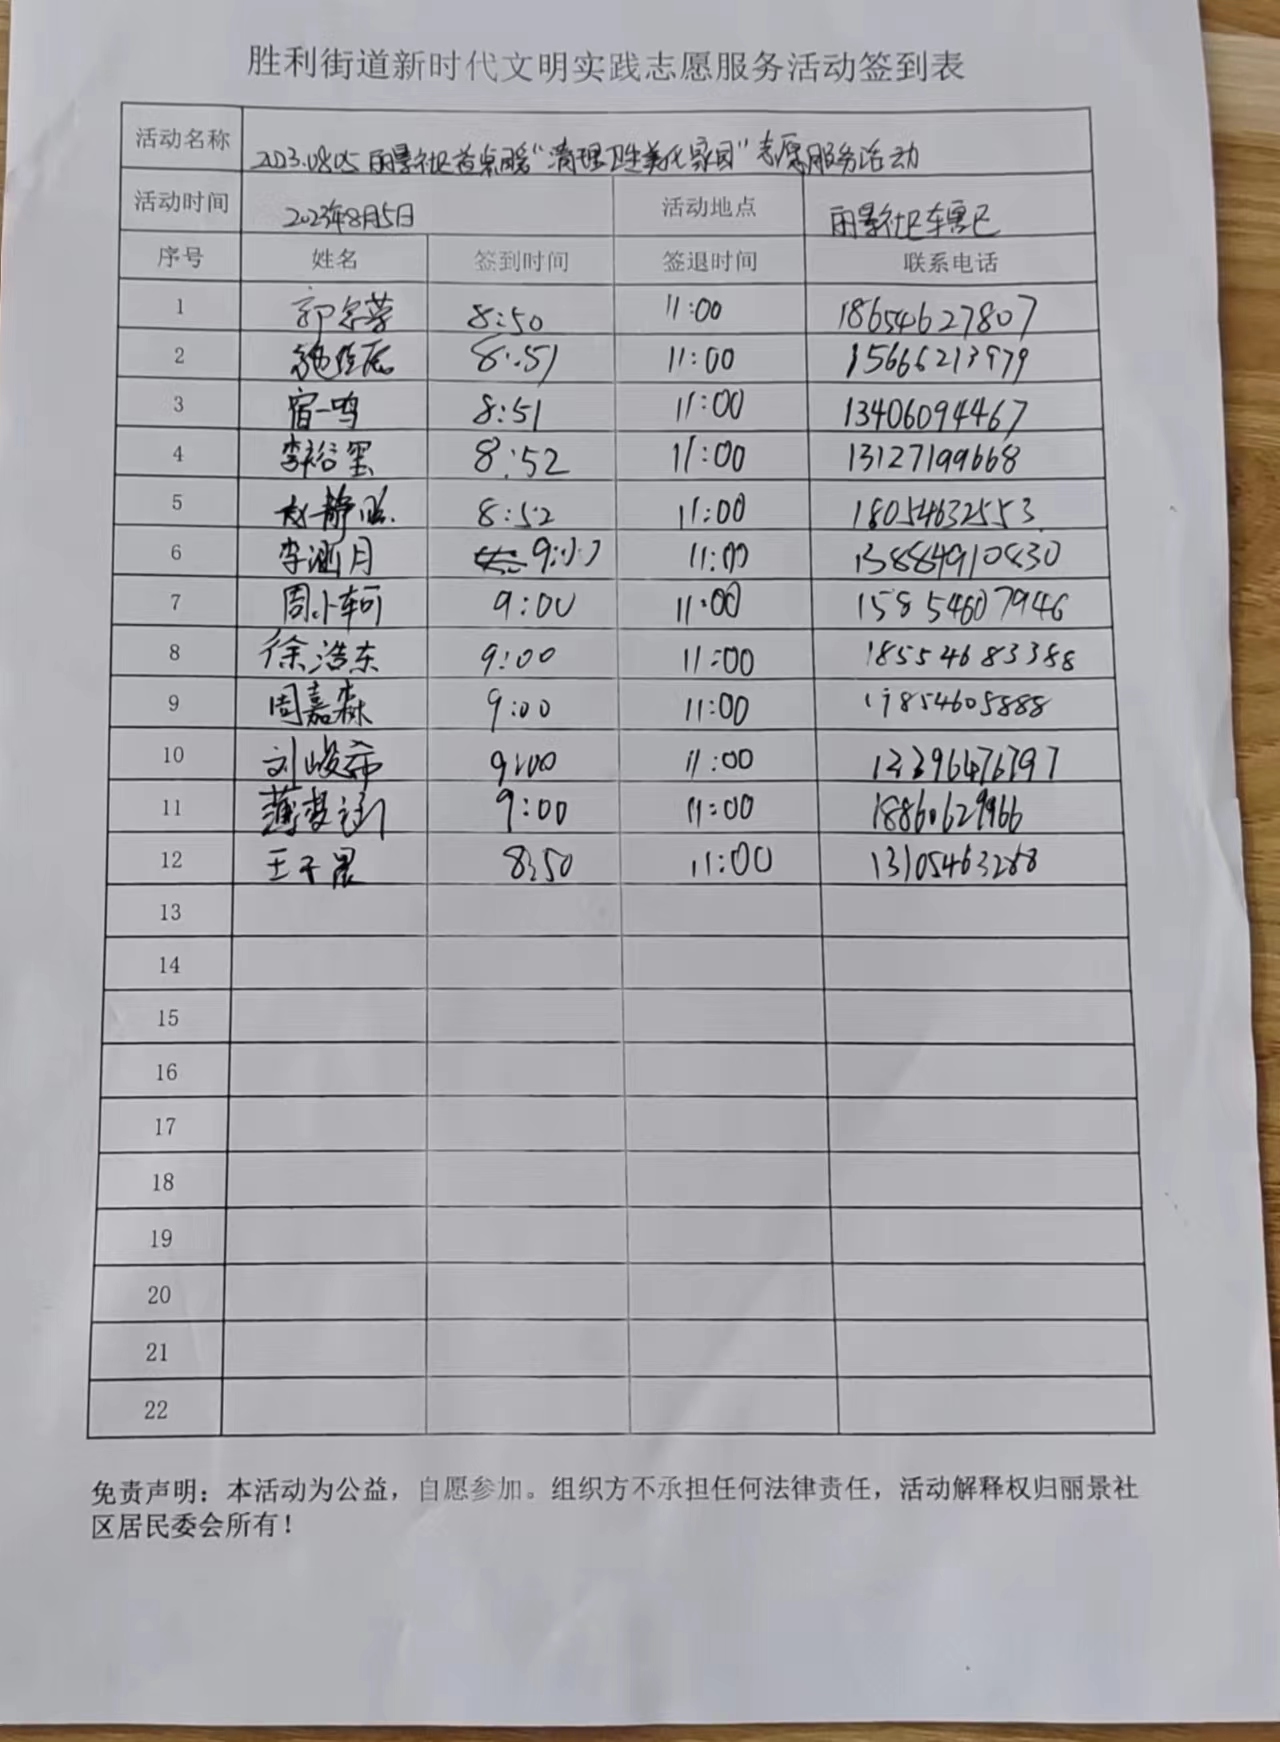 胜利街道新时代文明实践志愿服务活动签到表
活动名称 2023.08.05 丽景社区益点暖“清理卫生美化家园”志愿服务活动
活动时间 2023年8月5日 活动地点 丽景社区车寓区
序号 姓名 签到时间 签退时间 联系电话
1 郭宗蓉 8:50 11:00 18654627807
2 8:51 11:00 15666213979
3 宿一鸣 8:51 11:00 13406094467
4 李裕玺 8:52 11:00 13127199668
5 赵静 8:52 11:00 18054632553
6 李涵月 9:00 11:00 13884910830
7 周小轲 9:00 11:00 15854607946
8 徐浩东 9:00 11:00 18554683388
9 周嘉森 9:00 11:00 19854605888
10 刘峻希 9:00 11:00 13396476797
11 薄梦涵 9:00 11:00 18860629966
12 王子晨 8:50 11:00 13105463288
13
14
15
16
17
18
19
20
21
22
免责声明：本活动为公益，自愿参加。组织方不承担任何法律责任，活动解释权归丽景社
区居民委会所有！